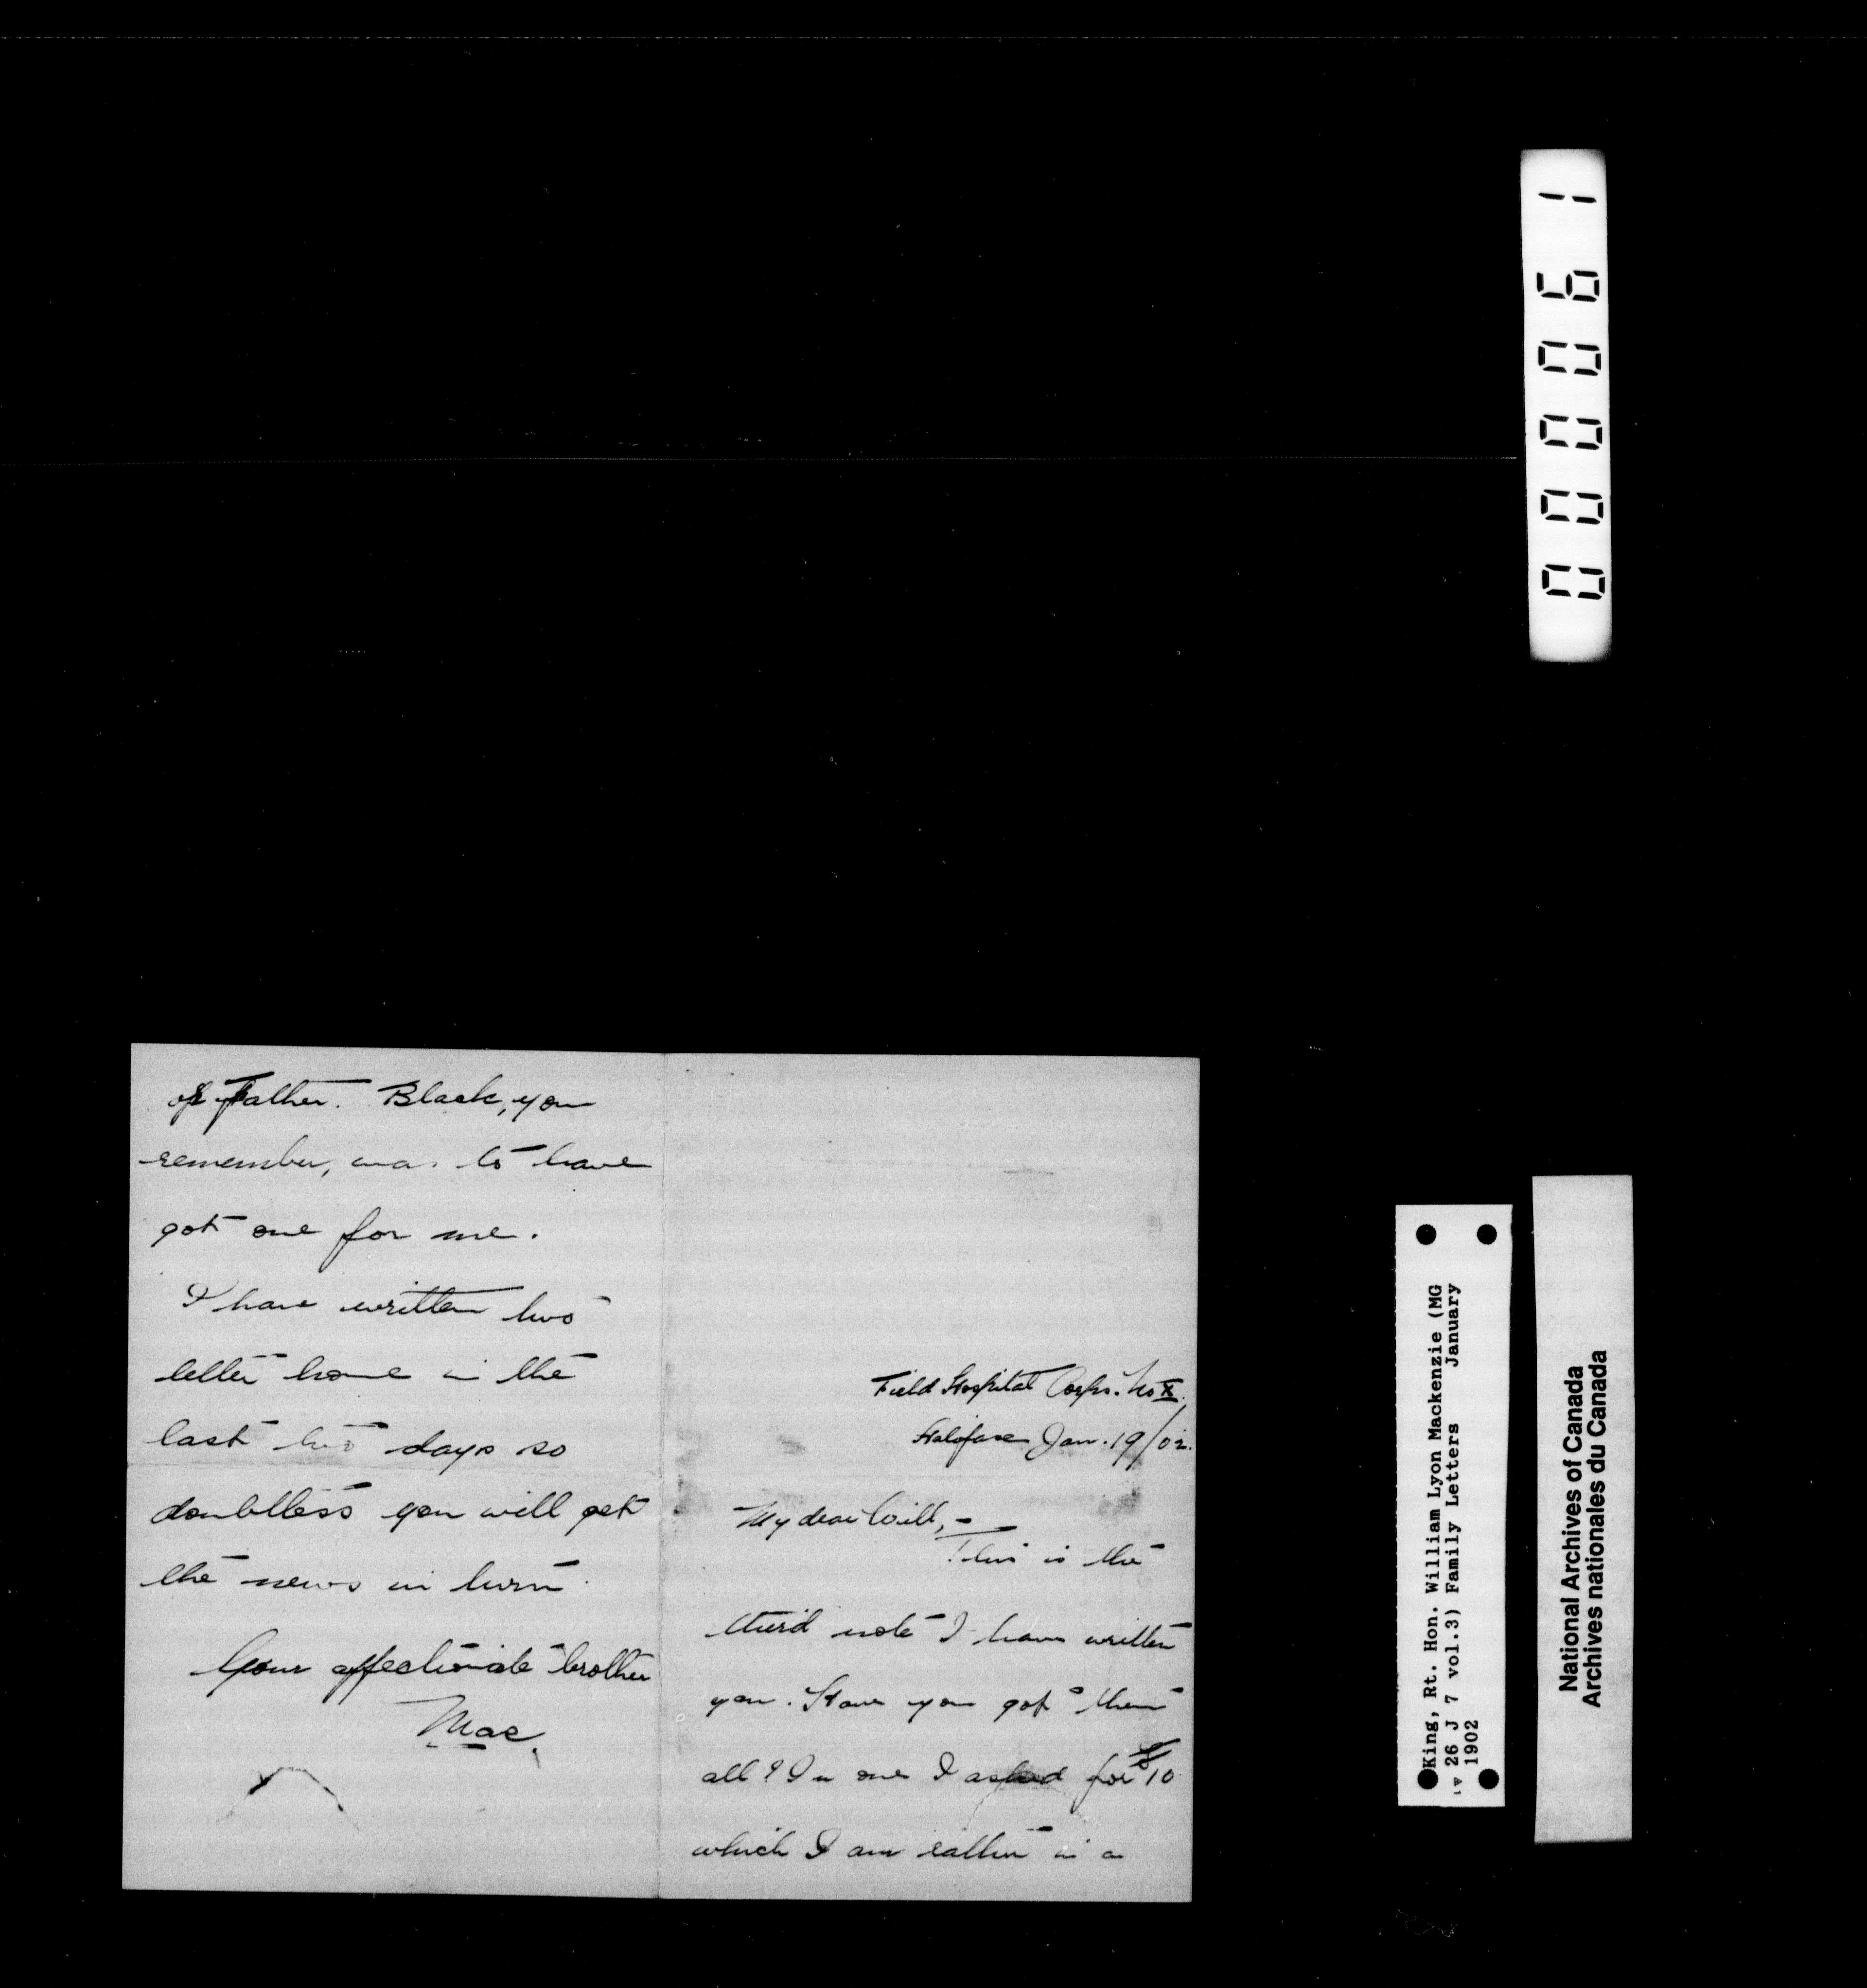 of Father. Black, you
remember, was to have
got one for me.
I have written two
letter home in the
last two days so
doubtless you will get
the news in turn.
Your affectionate brother
Mac.
Field Hospital Corps. No X.
Halifax Jan. 19/02.
My dear Will,-
This is the
third note I have written
you. Have you got them
all? In one I asked for $10
which I am rather in a
000061
King, Rt. Hon. William Lyon Mackenzie (MG
26 J 7 vol.3) Family Letters January
1902
National Archives of Canada
Archives nationales du Canada